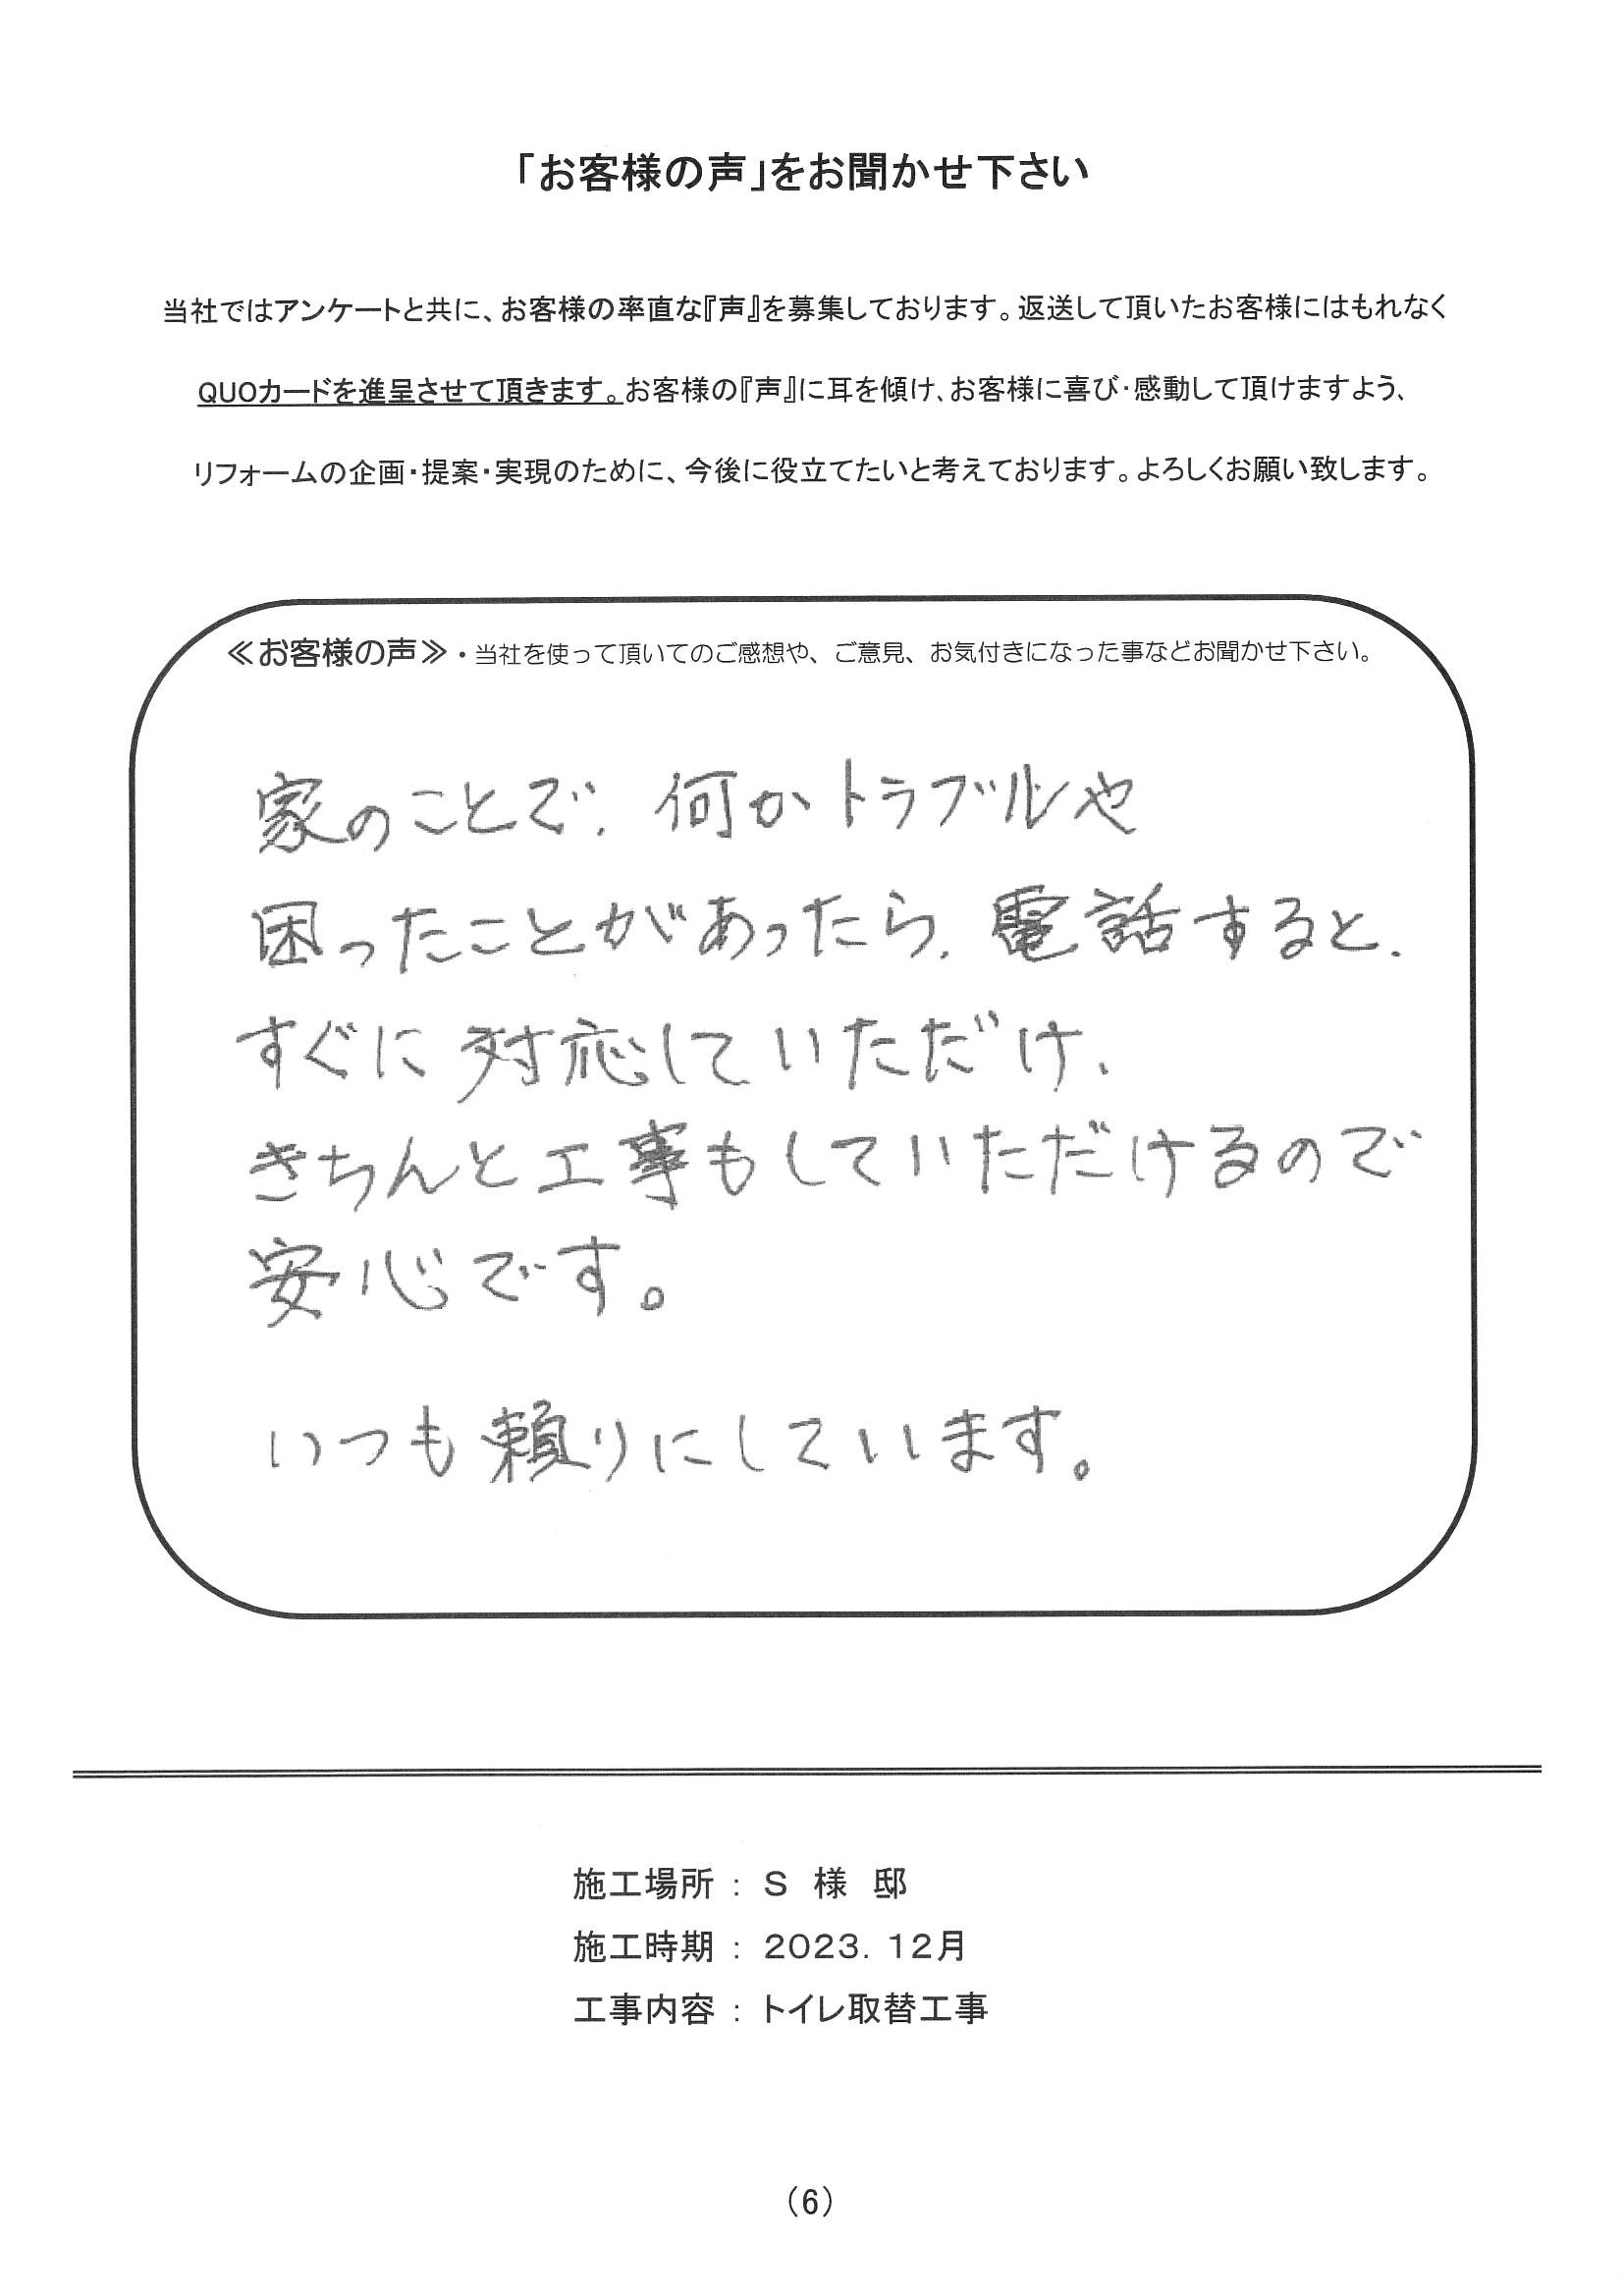 「お客様の声」をお聞かせ下さい
当社ではアンケートと共に、お客様の率直な『声』を募集しております。返送して頂いたお客様にはもれなく
QUOカードを進呈させて頂きます。お客様の『声』に耳を傾け、お客様に喜び・感動して頂けますよう、
リフォームの企画・提案・実現のために、今後に役立てたいと考えております。よろしくお願い致します。
≪お客様の声≫・当社を使って頂いてのご感想や、ご意見、お気付きになった事などお聞かせ下さい。
家のことで、何かトラブルや
困ったことがあったら、電話すると、
すぐに対応していただけ、
きちんと工事もしていただけるので
安心です。
いつも頼りにしています。
施工場所 : S 様 邸
施工時期 : 2023. 12月
工事内容 : トイレ取替工事
(6)